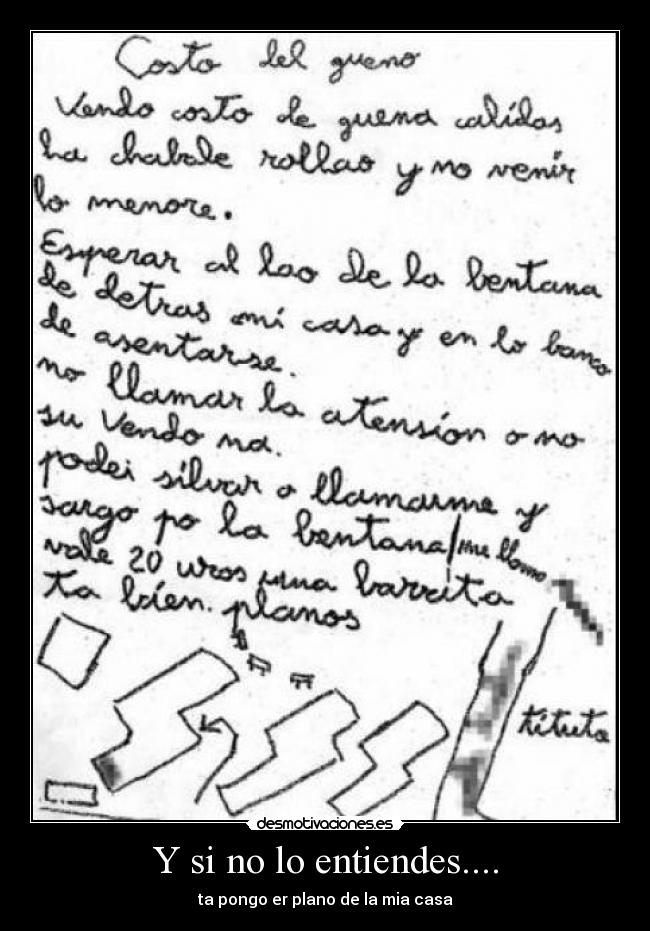 Costo del gueno
Vendo costo de guena calidas
ha chabale rollao y no venir
lo menore.
Esperar al lao de la bentana
de detras mi casa y en lo banco
de asentarse.
no llamar la atension o no
su Vendo na.
podei silvar o llamarme y
sargo po la bentana/me llamo
vale 20 uros una barrita
ta bien. planos
tituto
desmotivaciones.es
Y si no lo entiendes....
ta pongo er plano de la mia casa